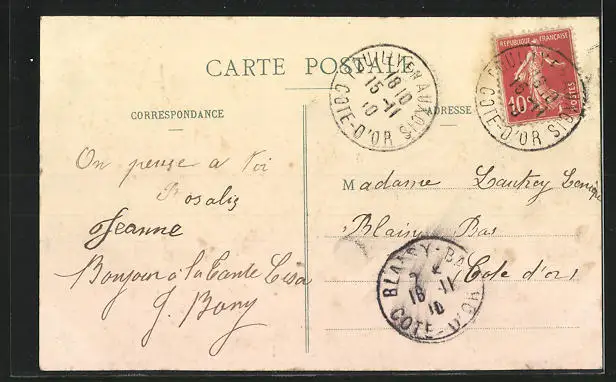 CARTE POSTALE
CORRESPONDANCE
ADRESSE
REPUBLIQUE FRANÇAISE
10c
POSTES
POUILLY-EN-AUXOIS
18 10
15-11
10
COTE-D'OR
On pense a toi
Rosalie
Jeanne
Bonjour à la Tante Lisa
J. Bony
Madame Lautrey
Blaisy Bas
Cote d'or
BLAISY-BAS
16-11
10
COTE-D'OR